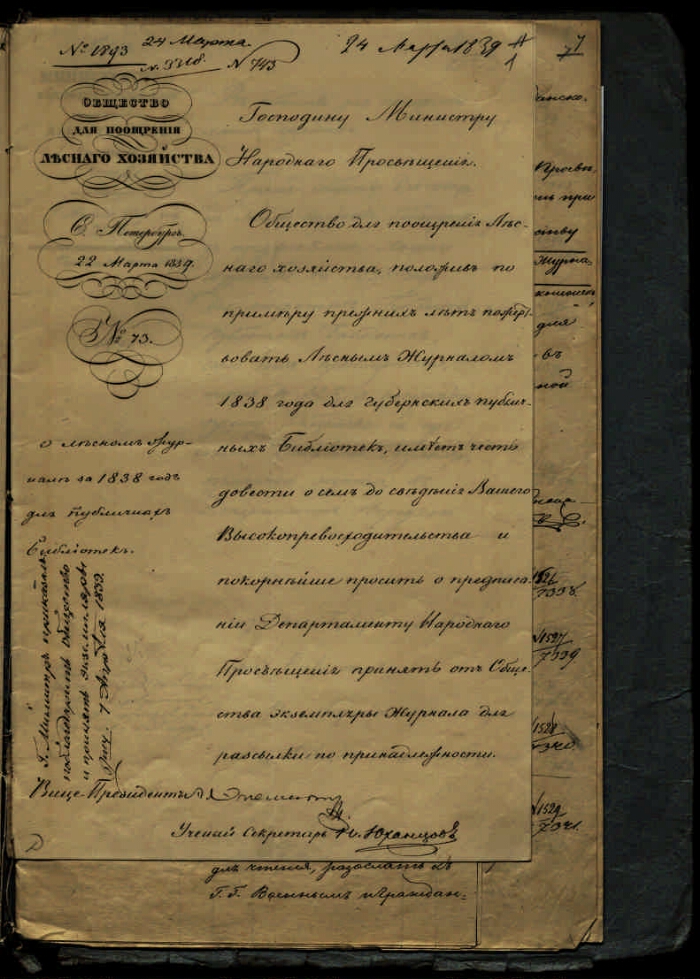 № 1893 24 Марта.
№ 743
24 Марта 1839
ОБЩЕСТВО
ДЛЯ ПООЩРЕНІЯ
ЛѢСНАГО ХОЗЯЙСТВА
С. Петербургъ.
22 Марта 1839.
№ 73.
о лѣсномъ Жур-
налѣ за 1838 годъ
для публичныхъ
библіотекъ.
Г. Министръ приказалъ
поблагодарить Общество
и принять экземпляры
1839.
Господину Министру
Народнаго Просвѣщенія.
Общество для поощренія Лѣс-
наго хозяйства, положивъ по
примѣру прежнихъ лѣтъ пожерт-
вовать Лѣснымъ Журналомъ
1838 года для губернскихъ публич-
ныхъ Библіотекъ, имѣетъ честь
довести о семъ до свѣдѣнія Вашего
Высокопревосходительства и
покорнѣйше просить о предписа-
ніи Департаменту Народнаго
Просвѣщенія принять отъ Обще-
ства экземпляры Журнала для
разсылки по принадлежности.
Вице-Президентъ
Ученый Секретарь
для чтенія, разослать къ
Г. Г. Военнымъ и Граждан-